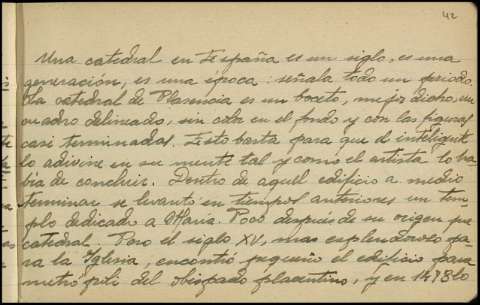 42
Una catedral en España es un siglo, es una
generación, es una época: señala todo un periodo.
La catedral de Plasencia es un boceto, mejor dicho, un
cuadro delineado, sin color en el fondo y con las figuras
casi terminadas. Esto basta para que el inteligente
lo adivine en su mente tal y como el artista lo ha
bia de concluir. Dentro de aquel edificio a medio
terminar se levantó en tiempos anteriores un tem
plo dedicado a Maria. Poco despues de su origen fue
catedral. Pero el siglo XV, mas esplendoroso pa
ra la Iglesia, encontró pequeño el edificio para
metrópoli del obispado placentino, y en 1498 lo